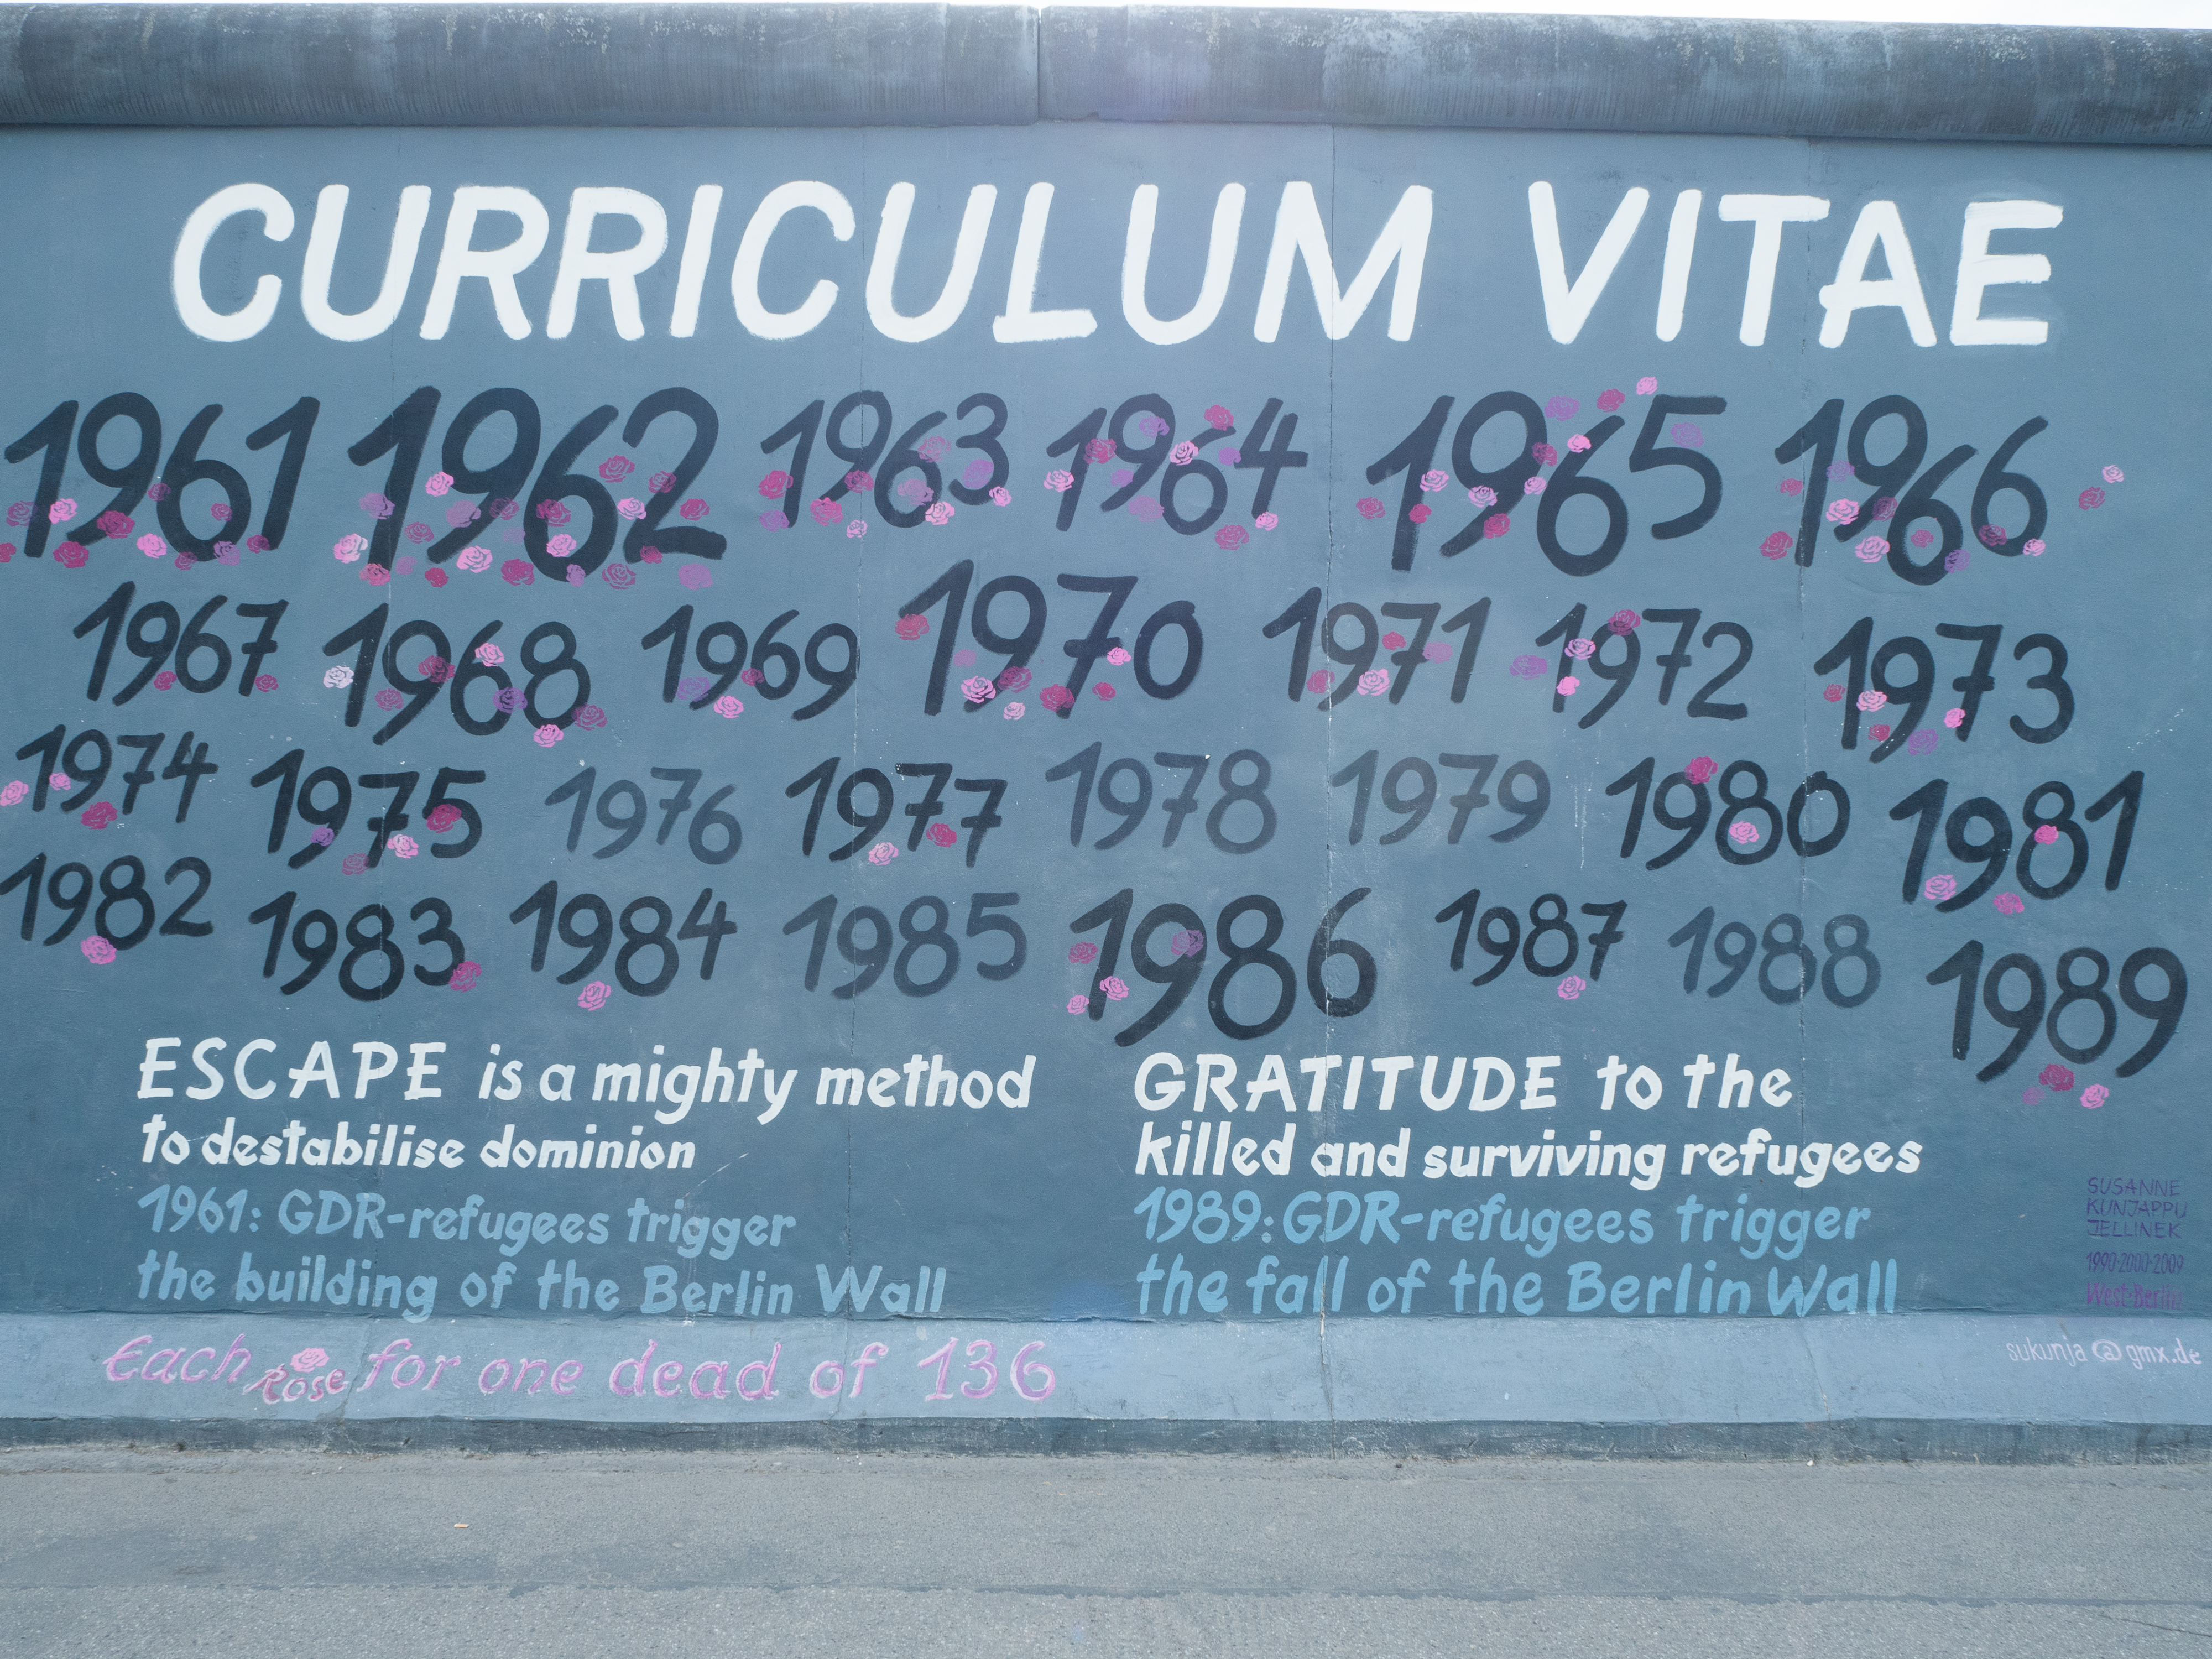 CURRICULUM VITAE
1961 1962 1963 1964 1965 1966
1967 1968 1969 1970 1971 1972 1973
1974 1975 1976 1977 1978 1979 1980 1981
1982 1983 1984 1985 1986 1987 1988 1989
ESCAPE is a mighty method
to destabilise dominion
1961: GDR-refugees trigger
the building of the Berlin Wall
GRATITUDE to the
killed and surviving refugees
1989: GDR-refugees trigger
the fall of the Berlin Wall
SUSANNE
KUNJAPPU
JELLINEK
1990·2000·2009
West-Berlin
Each Rose for one dead of 136
sukunja@gmx.de